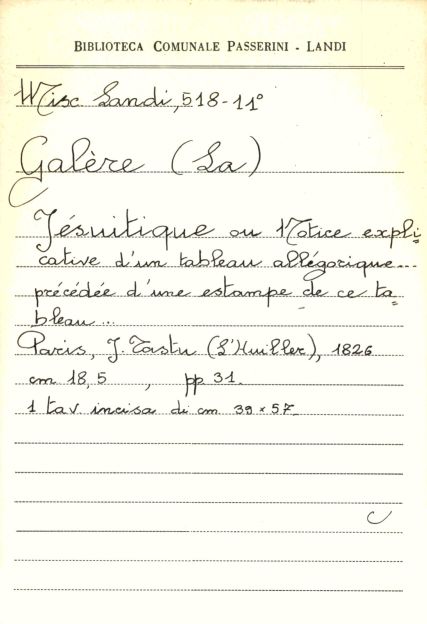 BIBLIOTECA COMUNALE PASSERINI - LANDI
Misc Landi, 518-11°
Galère (La)
Jésuitique ou Notice expli=
cative d'un tableau allégorique...
précédée d'une estampe de ce ta=
bleau...
Paris, J. Tastu (L'Huiller), 1826
cm 18,5 , pp 31.
1 tav incisa di cm 39×57.
C